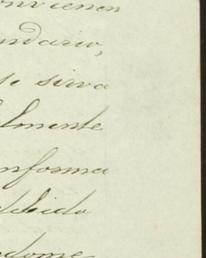 onvienen
undario,
se sirva
lmente
informa
debido
ndome